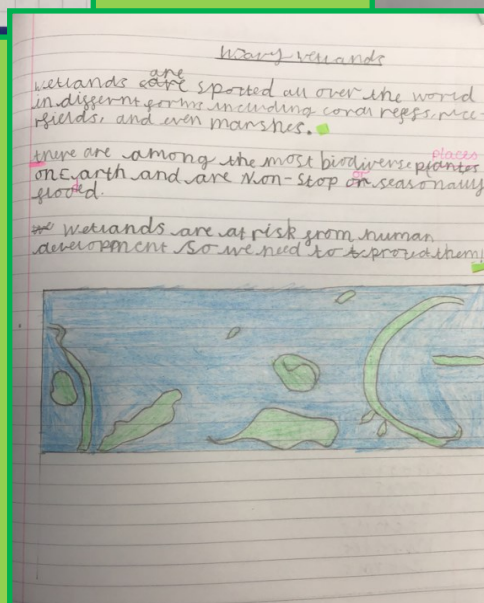 wetlands
wetlands are spotted all over the world
in differnt forms including coral refes, rice
fields, and even marshes.
places
there are among the most biodiverse plantes
on Earth and are Non-Stop or seasonally
flooded.
wetlands are at risk from human
development so we need to protect them